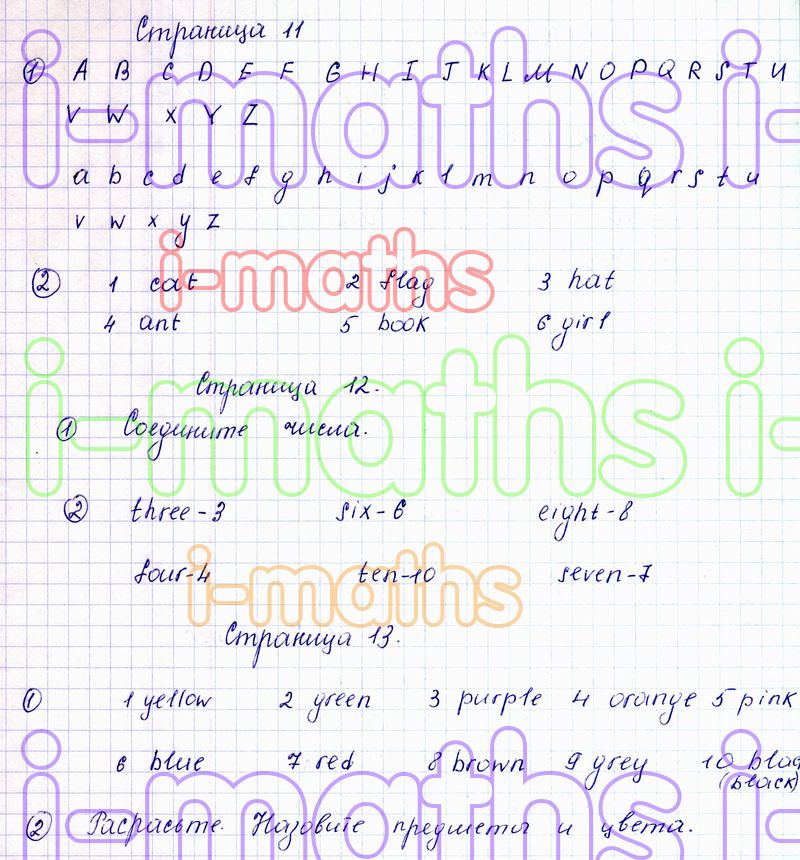 Страница 11
① A B C D E F G H I J K L M N O P Q R S T U
V W X Y Z
a b c d e f g h i j k l m n o p q r s t u
v w x y z
i-maths
② 1 cat 2 flag 3 hat
4 ant 5 book 6 girl
Страница 12.
① Соедините числа.
i-maths
② three-3 six-6 eight-8
four-4 ten-10 seven-7
i-maths
Страница 13.
① 1 yellow 2 green 3 purple 4 orange 5 pink
6 blue 7 red 8 brown 9 grey 10 blac
(black)
i-maths
② Расрасьте. Назовите предметы и цвета.